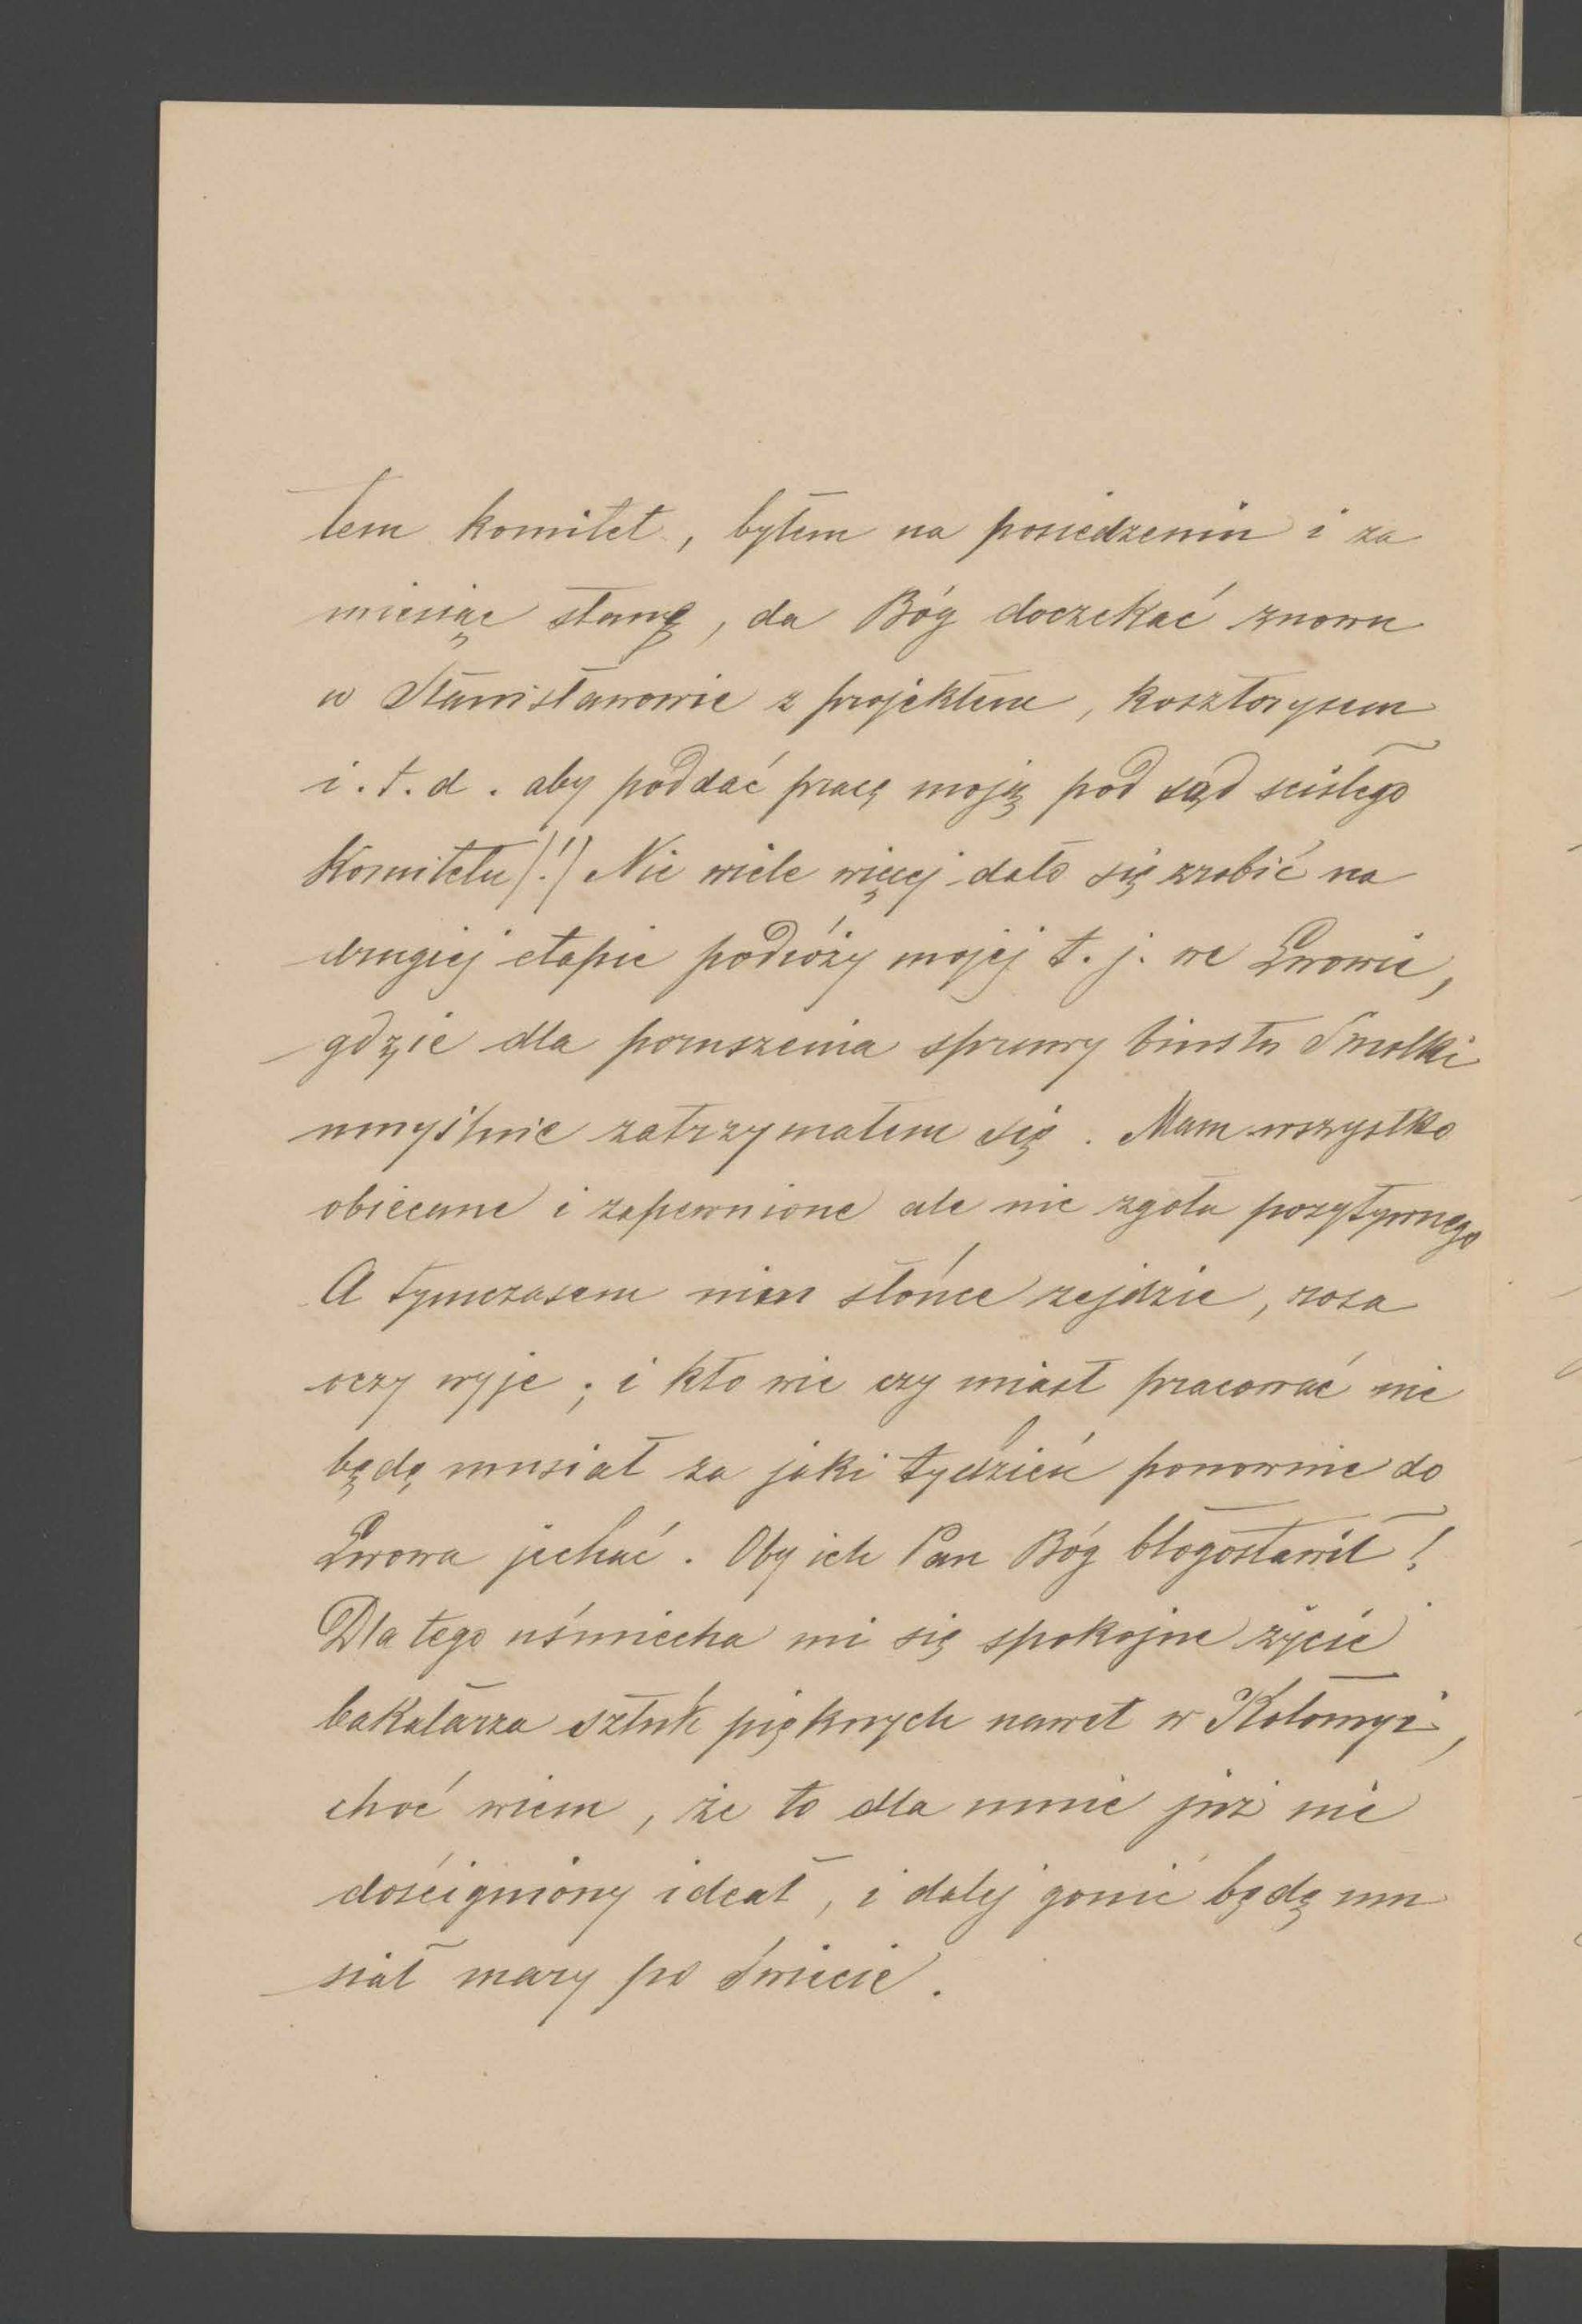 tem komitet, byłem na posiedzeniu i za
miesiąc stanę, da Bóg doczekać znowu
w Stanisławowie z projektem, kosztorysem
i.t.d. aby poddać pracę moją pod sąd scisłego
Komitetu (!) Nie wiele więcej dało się zrobić na
drugiej etapie podróży mojej t.j. we Lwowie,
gdzie dla poruszenia sprawy biustu Smolki
umyślnie zatrzymałem się. Mam wszystko
obiecane i zapewnione ale nic zgoła pozytywnego
A tymczasem nim słońce zejdzie, rosa
oczy wyje; i kto wie czy miast pracować nie
będę musiał za jaki tydzień ponownie do
Lwowa jechać. Oby ich Pan Bóg błogosławił!
Dla tego uśmiecha mi się spokojne życie
bakałarza sztuk pięknych nawet w Kołomyi,
choć wiem, że to dla mnie już nie
dościgniony ideał, i dalej gonić będę mu
siał mary po świecie.